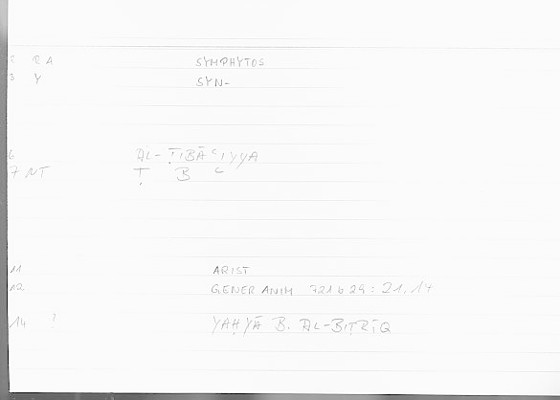 2 RA SYMPHYTOS
3 Y SYN-
6 AL-ṬIBĀʿIYYA
7 NT Ṭ B ʿ
11 ARIST
12 GENER ANIM 721 b 29 : 21,17
14 ! YAḤYĀ B. AL-BIṬRĪQ